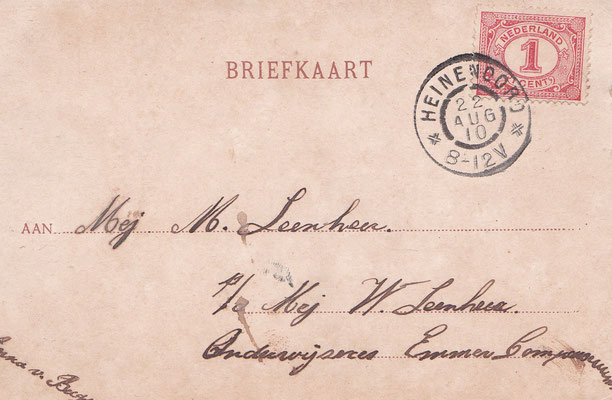 NEDERLAND
1
CENT
BRIEFKAART
HEINENOORD
22
AUG
10
8-12V
AAN Mej. M. Leenheer.
p/a Mej W. Leenheer.
Onderwijzeres Emmer Compascuum
Anna v.